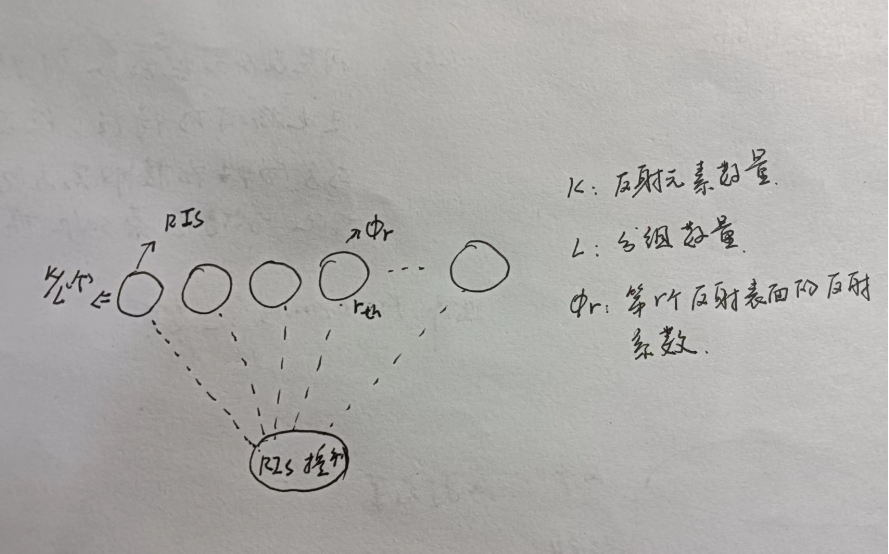 RIS
Φr
K/L个
rth
RIS 控制
K: 反射元素数量.
L: 分组数量.
Φr: 第r个反射表面的反射
系数.